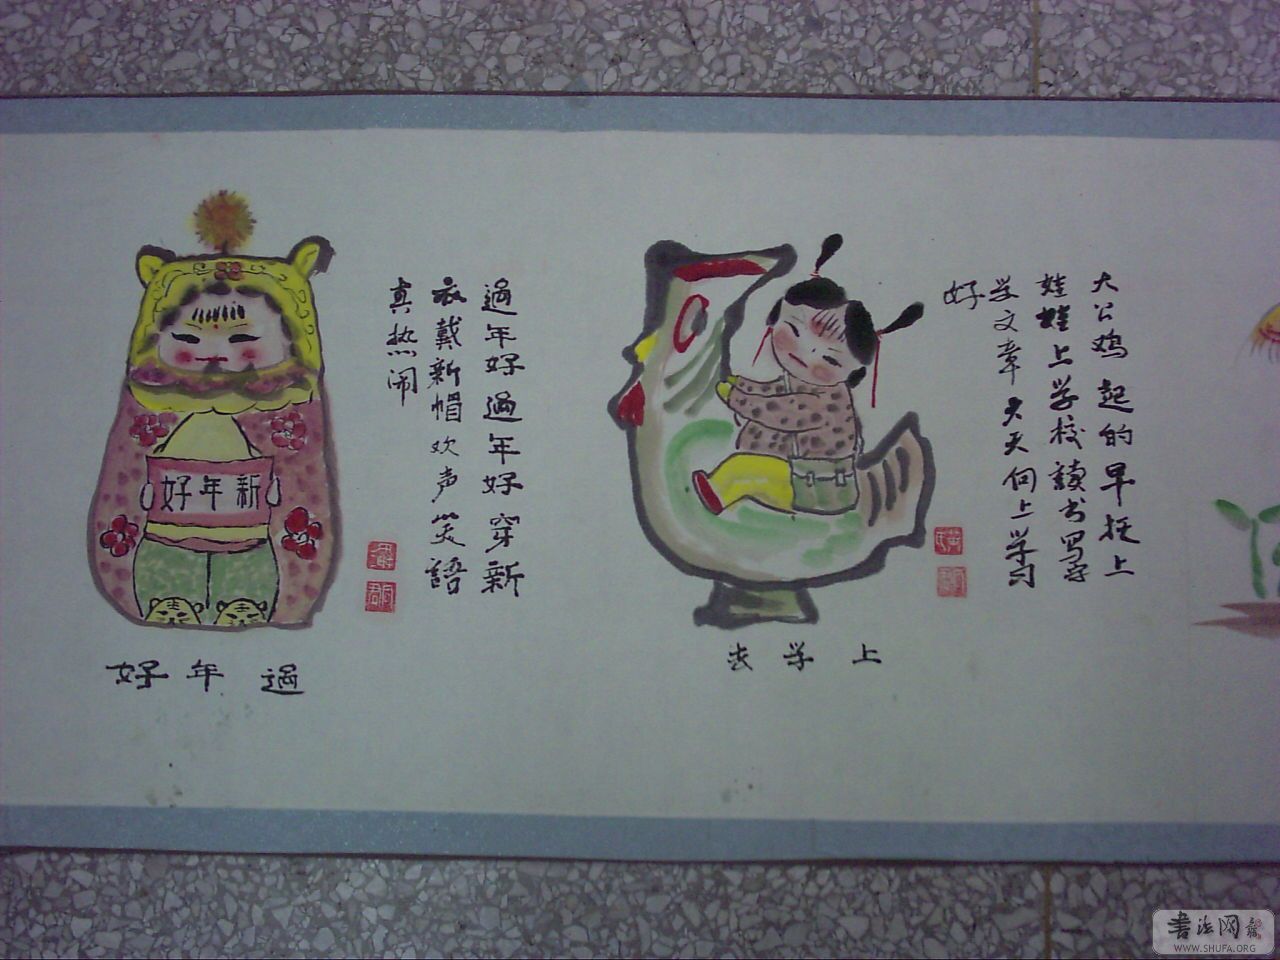 大公鸡起的早托上
娃娃上学校讀书写字
学文章天天向上学习
好
上学去
過年好過年好穿新
衣戴新帽欢声笑語
真热闹
新年好
過年好
書法网
WWW.SHUFA.ORG